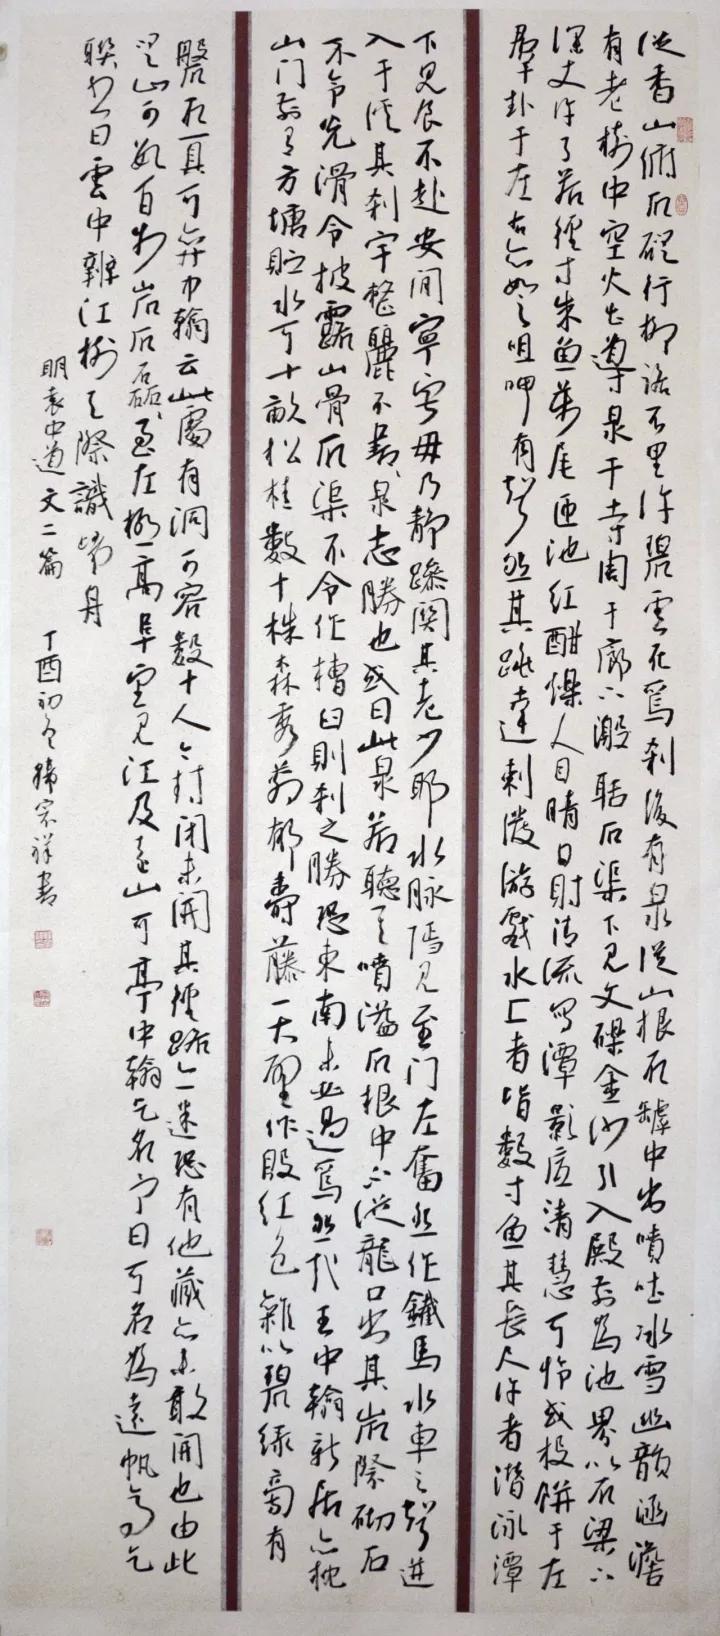 從香山俯石磴行柳路不里許碧雲在焉刹後有泉從山根石罅中出噴吐冰雪幽韻涵澹
有老樹中空火出導泉于寺周于廊下激聒石渠下見文礫金沙引入殿前為池界以石梁下
深丈許了若徑寸朱魚萬尾匝池紅酣爍人目晴日射清流寫潭影底清慧可怜或投餅于左
群卦于左右亦如之咀呷有聲然其跳達刺潑游戲水上者皆數寸魚其長尺許者潛泳潭
下見食不赴安閒寧寂毋乃靜躁關其老少耶水脈隱見至門左奮然作鐵馬水車之聲迸
入于溪其刹宇整麗不書書泉志勝也或曰此泉若聽其噴溢石根中不從龍口出其岩際砌石
不令光滑令披露山骨石渠不令作槽臼則刹之勝恐東南未必過焉然代王中翰新居亦枕
山门前有方塘貯水可十畝松桂數十株森秀蓊鬱壽藤一大壁作殷紅色雜以碧綠旁有
磐石一具可弈中翰云此處有洞可容數十人今封閉未開其徑路亦迷恐有他藏亦未敢開也由此
望山可數百步岩石磊磊至左極一高阜望見江及遠山可亭中翰乞名予曰可名為遠帆亭乞
聯書曰雲中辨江樹天際識歸舟
明袁中道文二篇 丁酉初冬 宗祥書